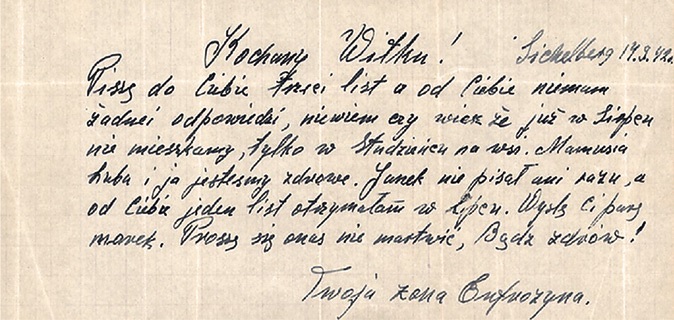 Kochany Witku! Sichelberg 14.9.42r.
Piszę do Ciebie trzeci list a od Ciebie niemam
żadnei odpowiedzi, niewiem czy wiesz że już w Sierpcu
nie mieszkamy, tylko w Studzieńcu na wsi. Mamusia
Luba i ja jesteśmy zdrowe. Janek nie pisał ani razu, a
od Ciebie jeden list otrzymałam w lipcu. Wyślę Ci parę
marek. Proszę się onas nie martwić, Bądź zdrów!
Twoja żona Eufrozyna.